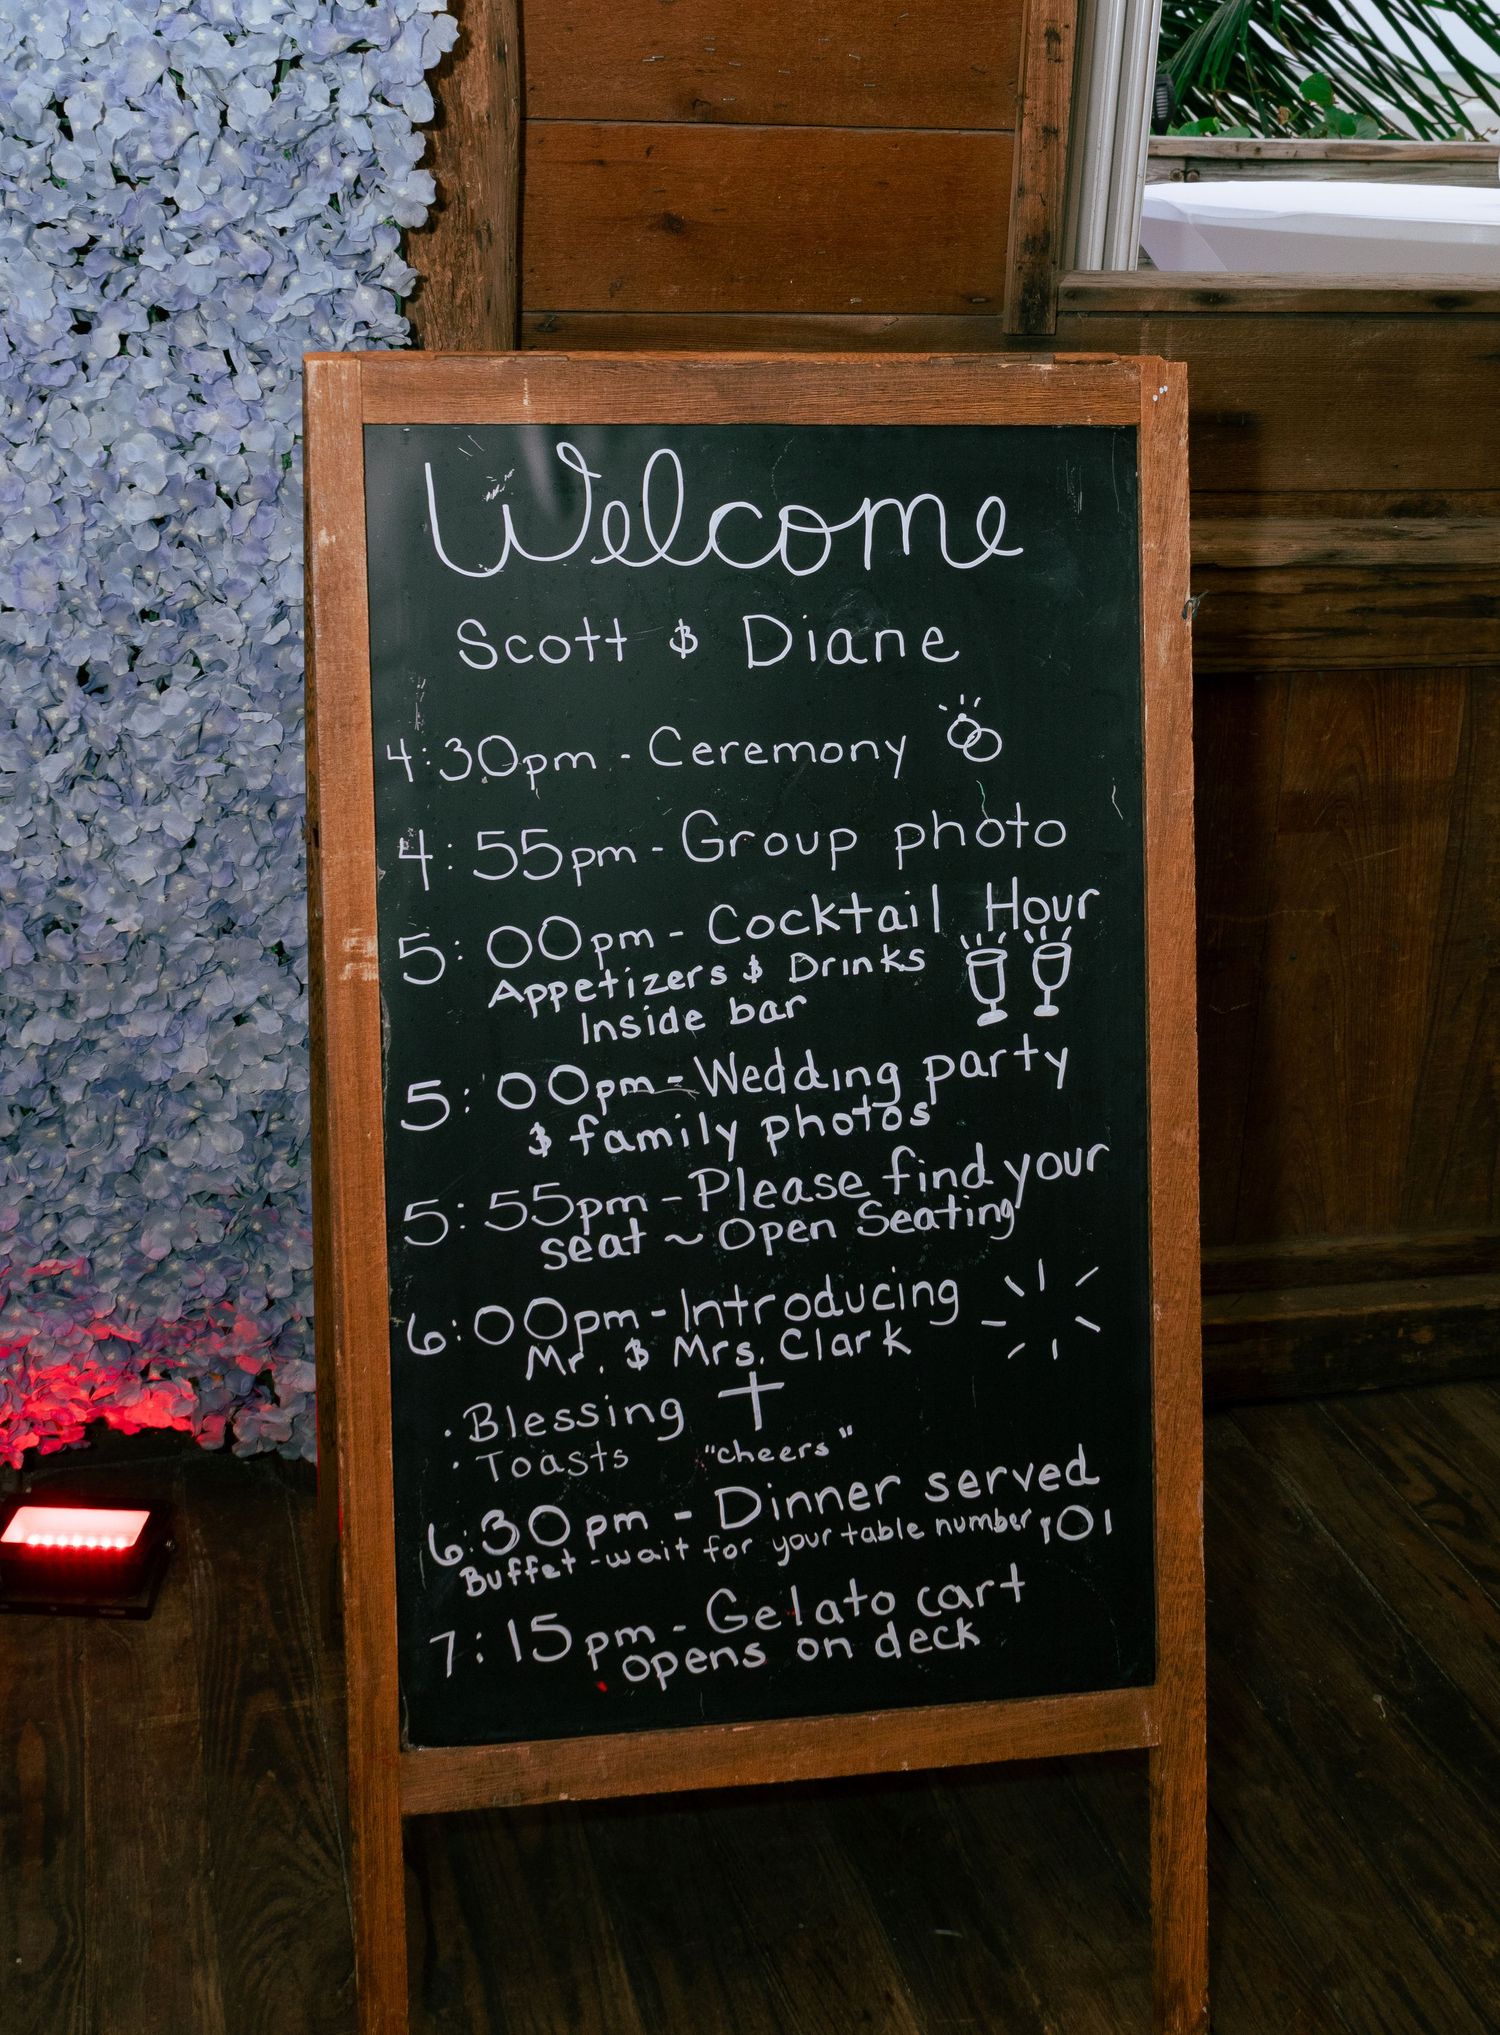 Welcome
Scott & Diane
4:30pm - Ceremony
4:55pm - Group photo
5:00pm - Cocktail Hour
Appetizers & Drinks
Inside bar
5:00pm - Wedding party
& family photos
5:55pm - Please find your
seat ~ Open Seating
6:00pm - Introducing
Mr. & Mrs. Clark
· Blessing
· Toasts "cheers"
6:30pm - Dinner served
Buffet - wait for your table number
7:15pm - Gelato cart
opens on deck